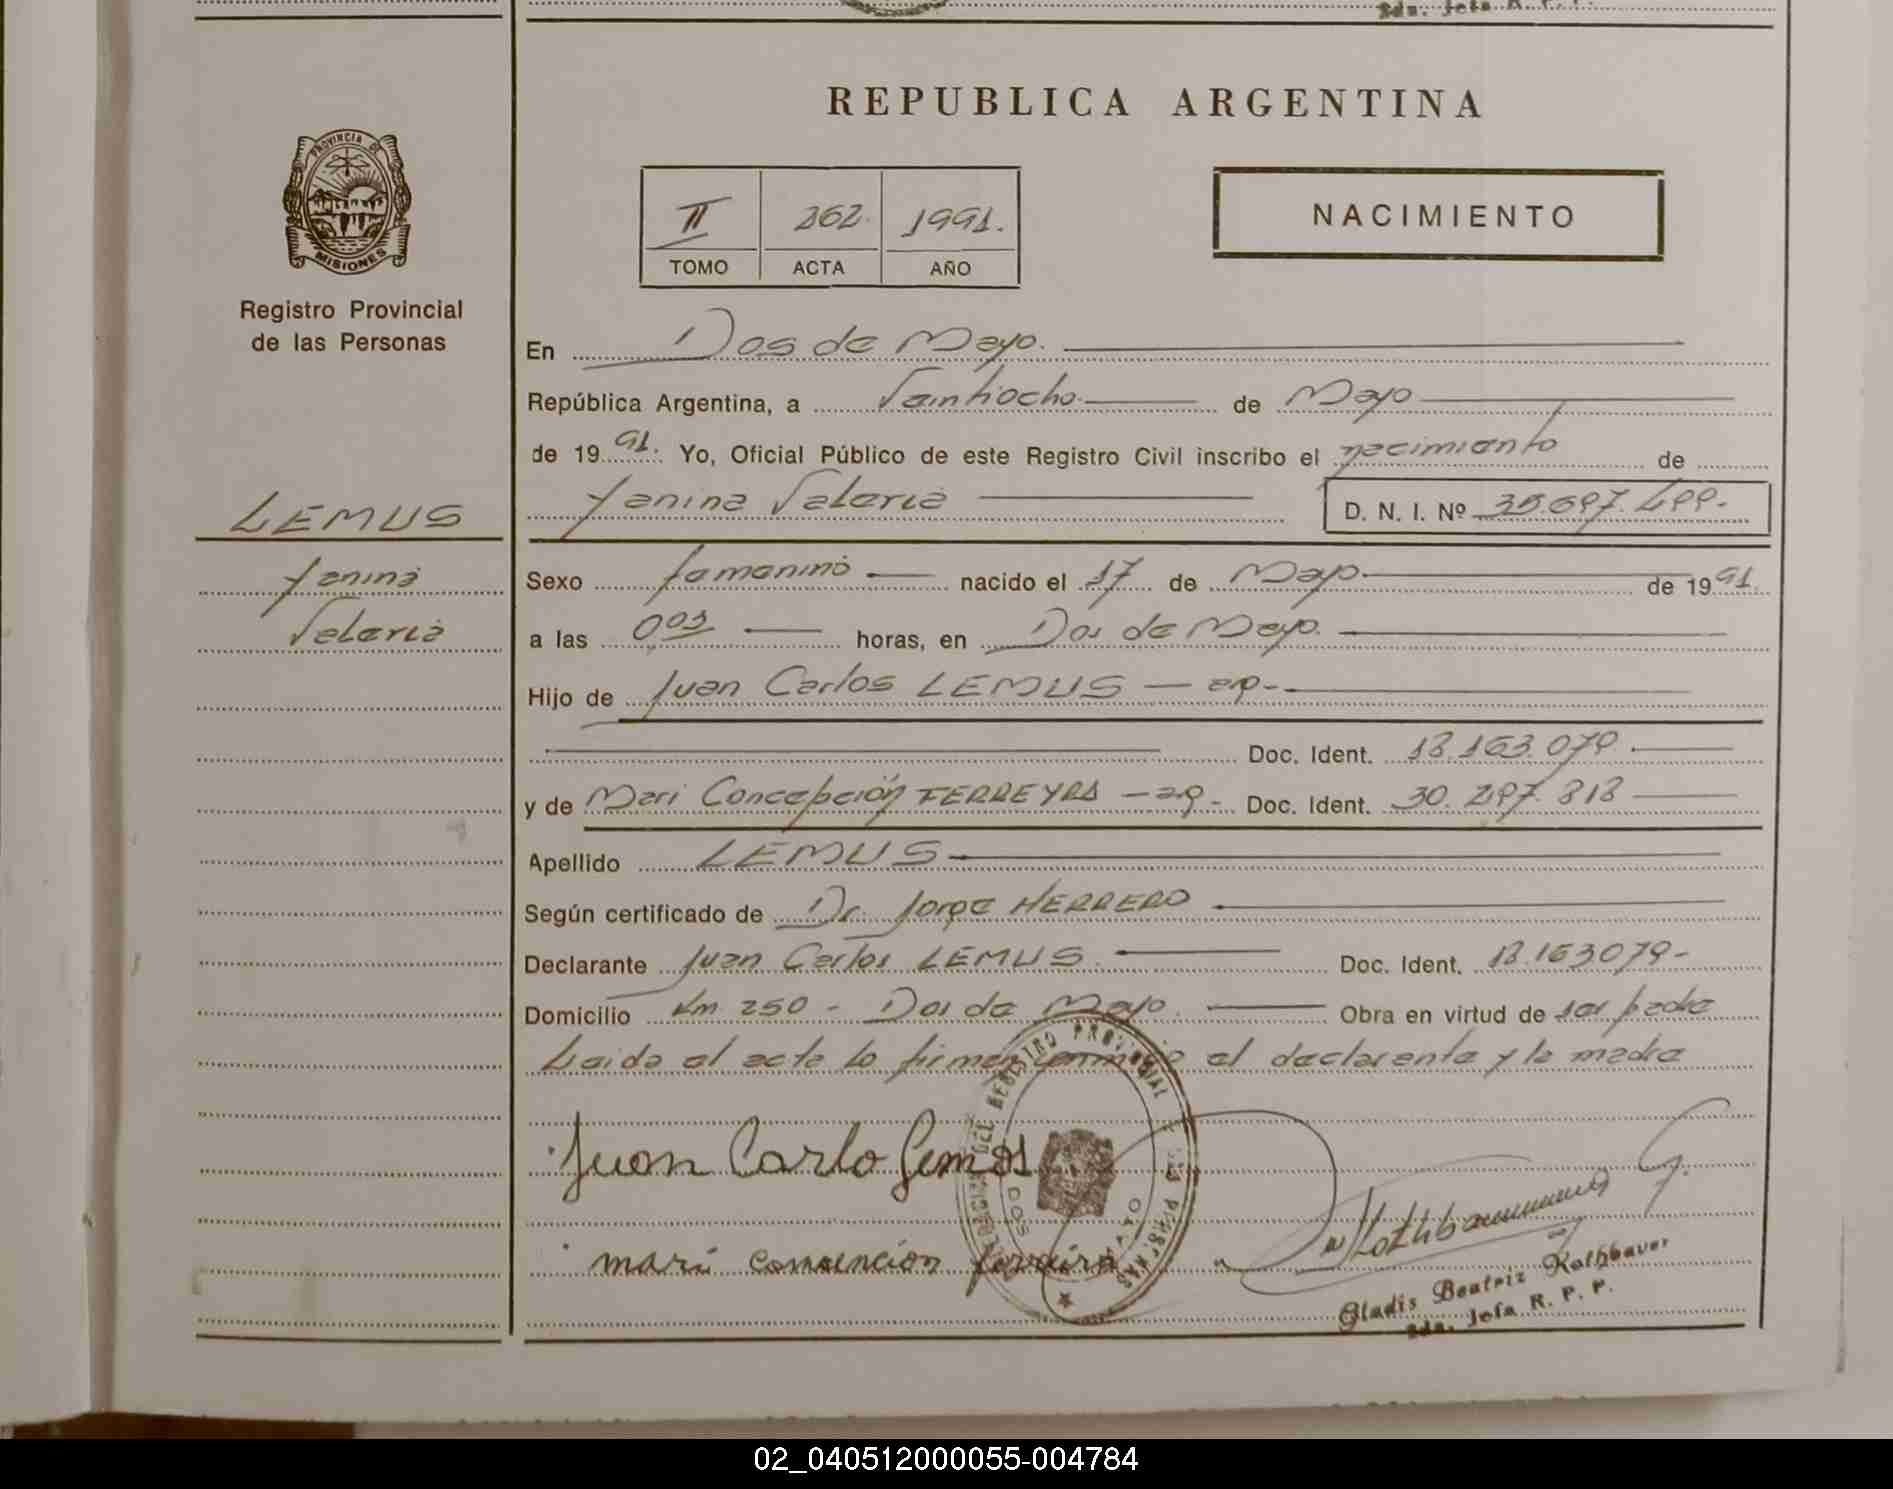 Sda. Jefa R. P. P.
REPUBLICA ARGENTINA
PROVINCIA DE
MISIONES
Registro Provincial
de las Personas
II 262. 1991.
TOMO ACTA AÑO
NACIMIENTO
En Dos de Mayo.
República Argentina, a Veintiocho de Mayo
de 1991. Yo, Oficial Público de este Registro Civil inscribo el nacimiento de
LEMUS
Yanina Valeria D. N. I. Nº
Yanina
Valeria
Sexo femenino nacido el 17 de Mayo de 1991.
a las horas, en Dos de Mayo.
Hijo de Juan Carlos LEMUS
Doc. Ident. 18.163.079
y de Mari Concepción FERREYRA Doc. Ident. 30.297.818
Apellido LEMUS
Según certificado de Dr. Jorge HERRERO
Declarante Juan Carlos LEMUS. Doc. Ident. 18.163079-
Domicilio Km 250 - Dos de Mayo. Obra en virtud de ser padre
Leida el acta la firman conmigo el declarante y la madre
Juan Carlo Lemos
mari concencion ferreira
Gladis Beatriz Rothbauer
Sda. Jefa R. P. P.
02_040512000055-004784